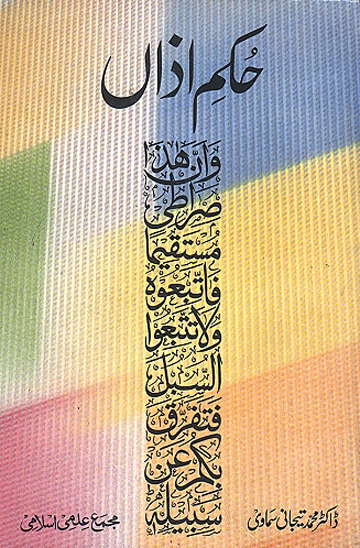 حُکمِ اذاں
وَاَنَّ هٰذَا
صِرَاطِي
مُسْتَقِيمًا
فَاتَّبِعُوهُ
وَلَا تَتَّبِعُوا
السُّبُلَ
فَتَفَرَّقَ
بِكُمْ عَنْ
سَبِيلِهِ
ڈاکٹر محمد تیجانی سماوی
مجمع علمی اسلامی